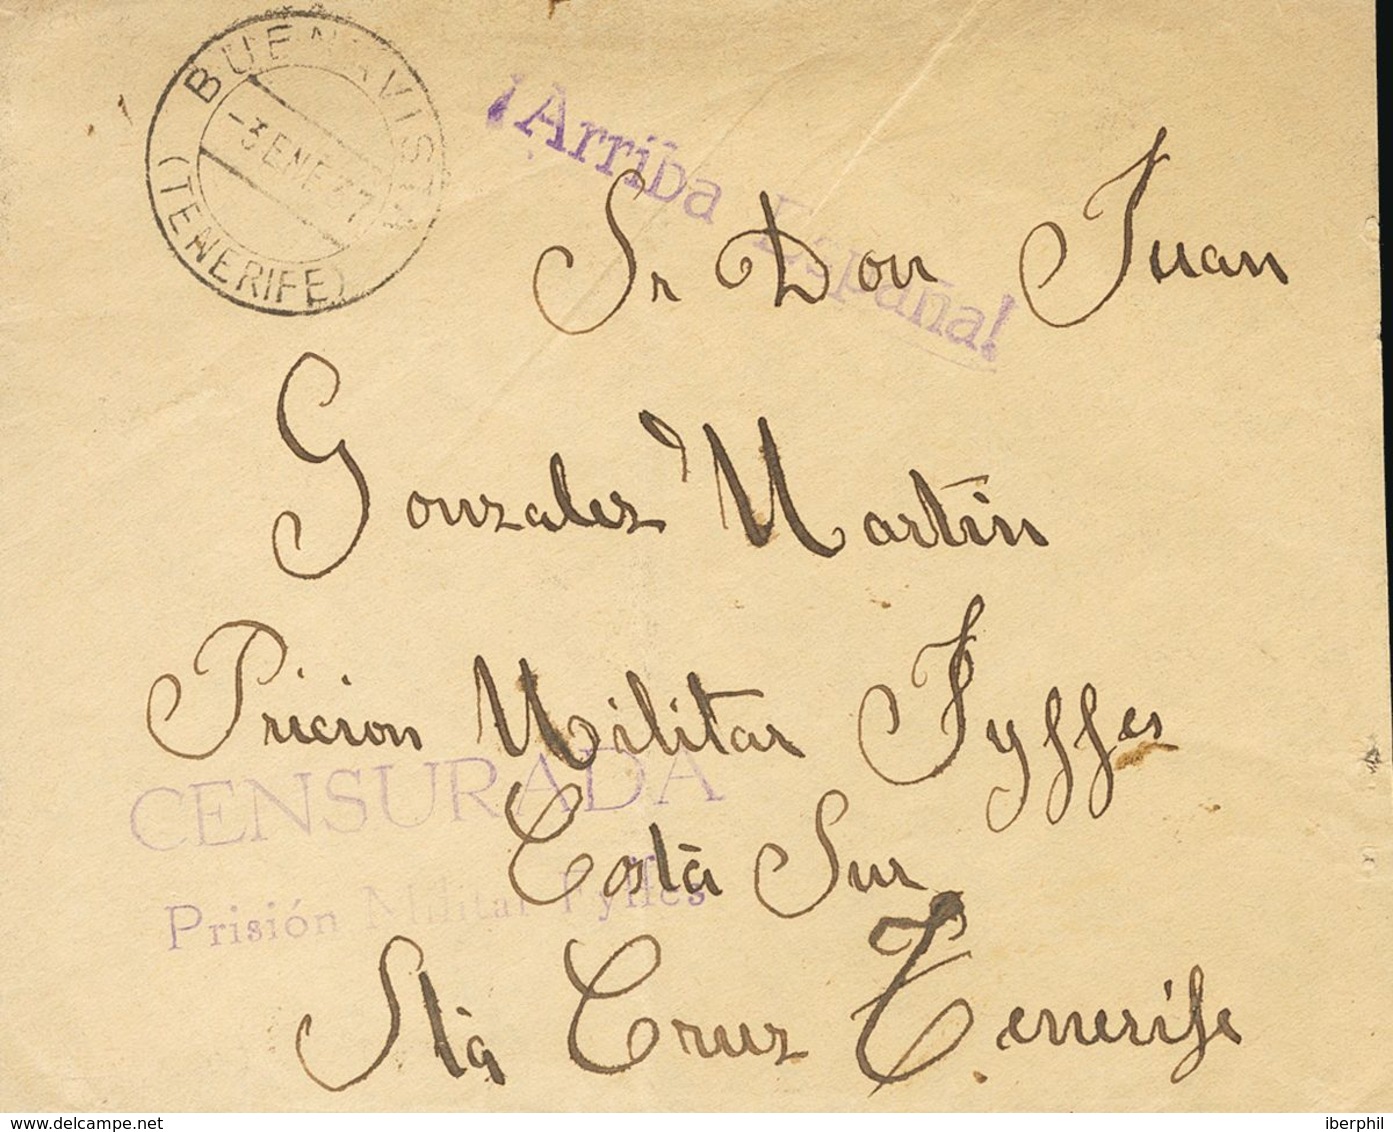 BUENAVISTA
-3 ENE 37
(TENERIFE)
¡Arriba España!
Sr Don Juan
Gonzalez Martin
Pricion Militar Fyffes
CENSURADA
Costa Sur
Prisión Militar Fyffes
Sta Cruz Tenerife
delcampe.net
iberphil